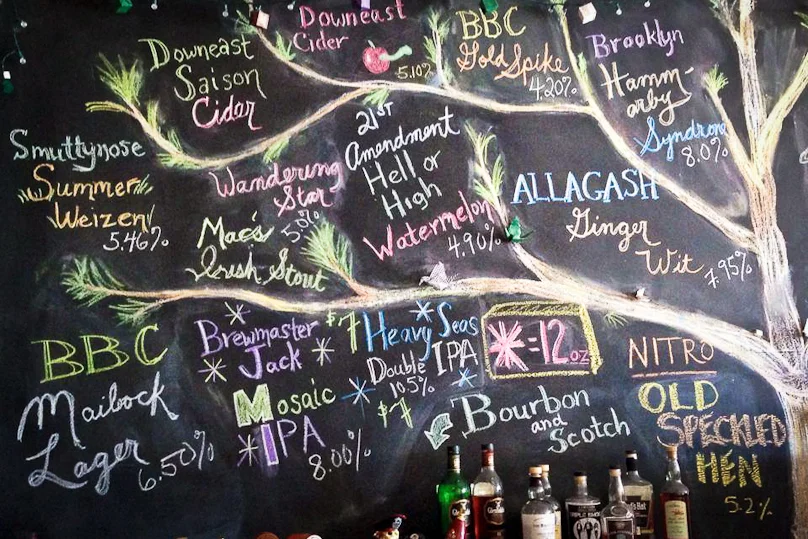 Downeast
Cider
5.10%
BBC
Gold Spike
4.20%
Brooklyn
Hamm-
arby
Syndrome
8.0%
Downeast
Saison
Cider
21st
Amendment
Hell or
High
Watermelon
4.90%
Smuttynose
Summer
Weizen
5.46%
Wandering
Star
5.0%
Mac's
Irish Stout
ALLAGASH
Ginger
Wit
7.95%
BBC
Maibock
Lager
6.50%
Brewmaster
Jack
Mosaic
IPA
8.00%
$7
Heavy Seas
Double IPA
10.5%
$7
* = 12oz
Bourbon
and
Scotch
NITRO
OLD
SPECKLED
HEN
5.2%